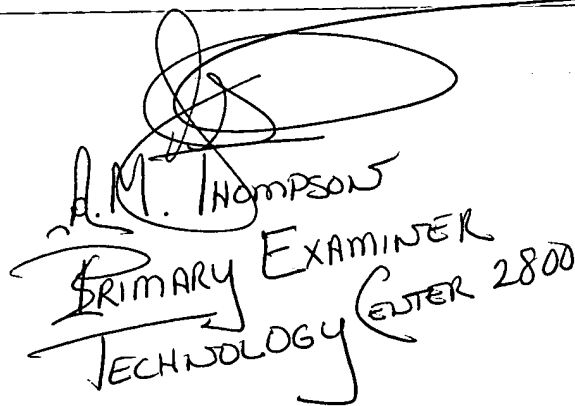 A.M. THOMPSON
PRIMARY EXAMINER
TECHNOLOGY CENTER 2800